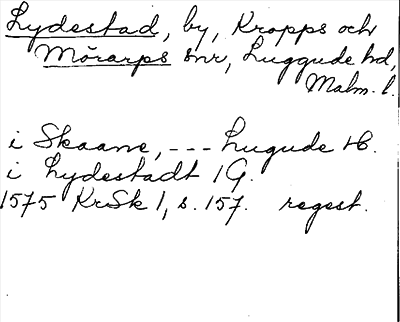 Lydestad, by, Kropps och
Mörarps snr, Luggude hd,
Malm. l.
i Skaane, --- Lugude H.
i Lydestadt 1 G.
1575 KrSk 1, s. 157. regest.